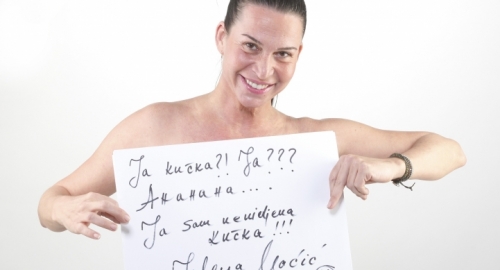 Ja kučka?! Ja???
Ahahaha....
Ja sam nevidjena
kučka!!!
Jelena